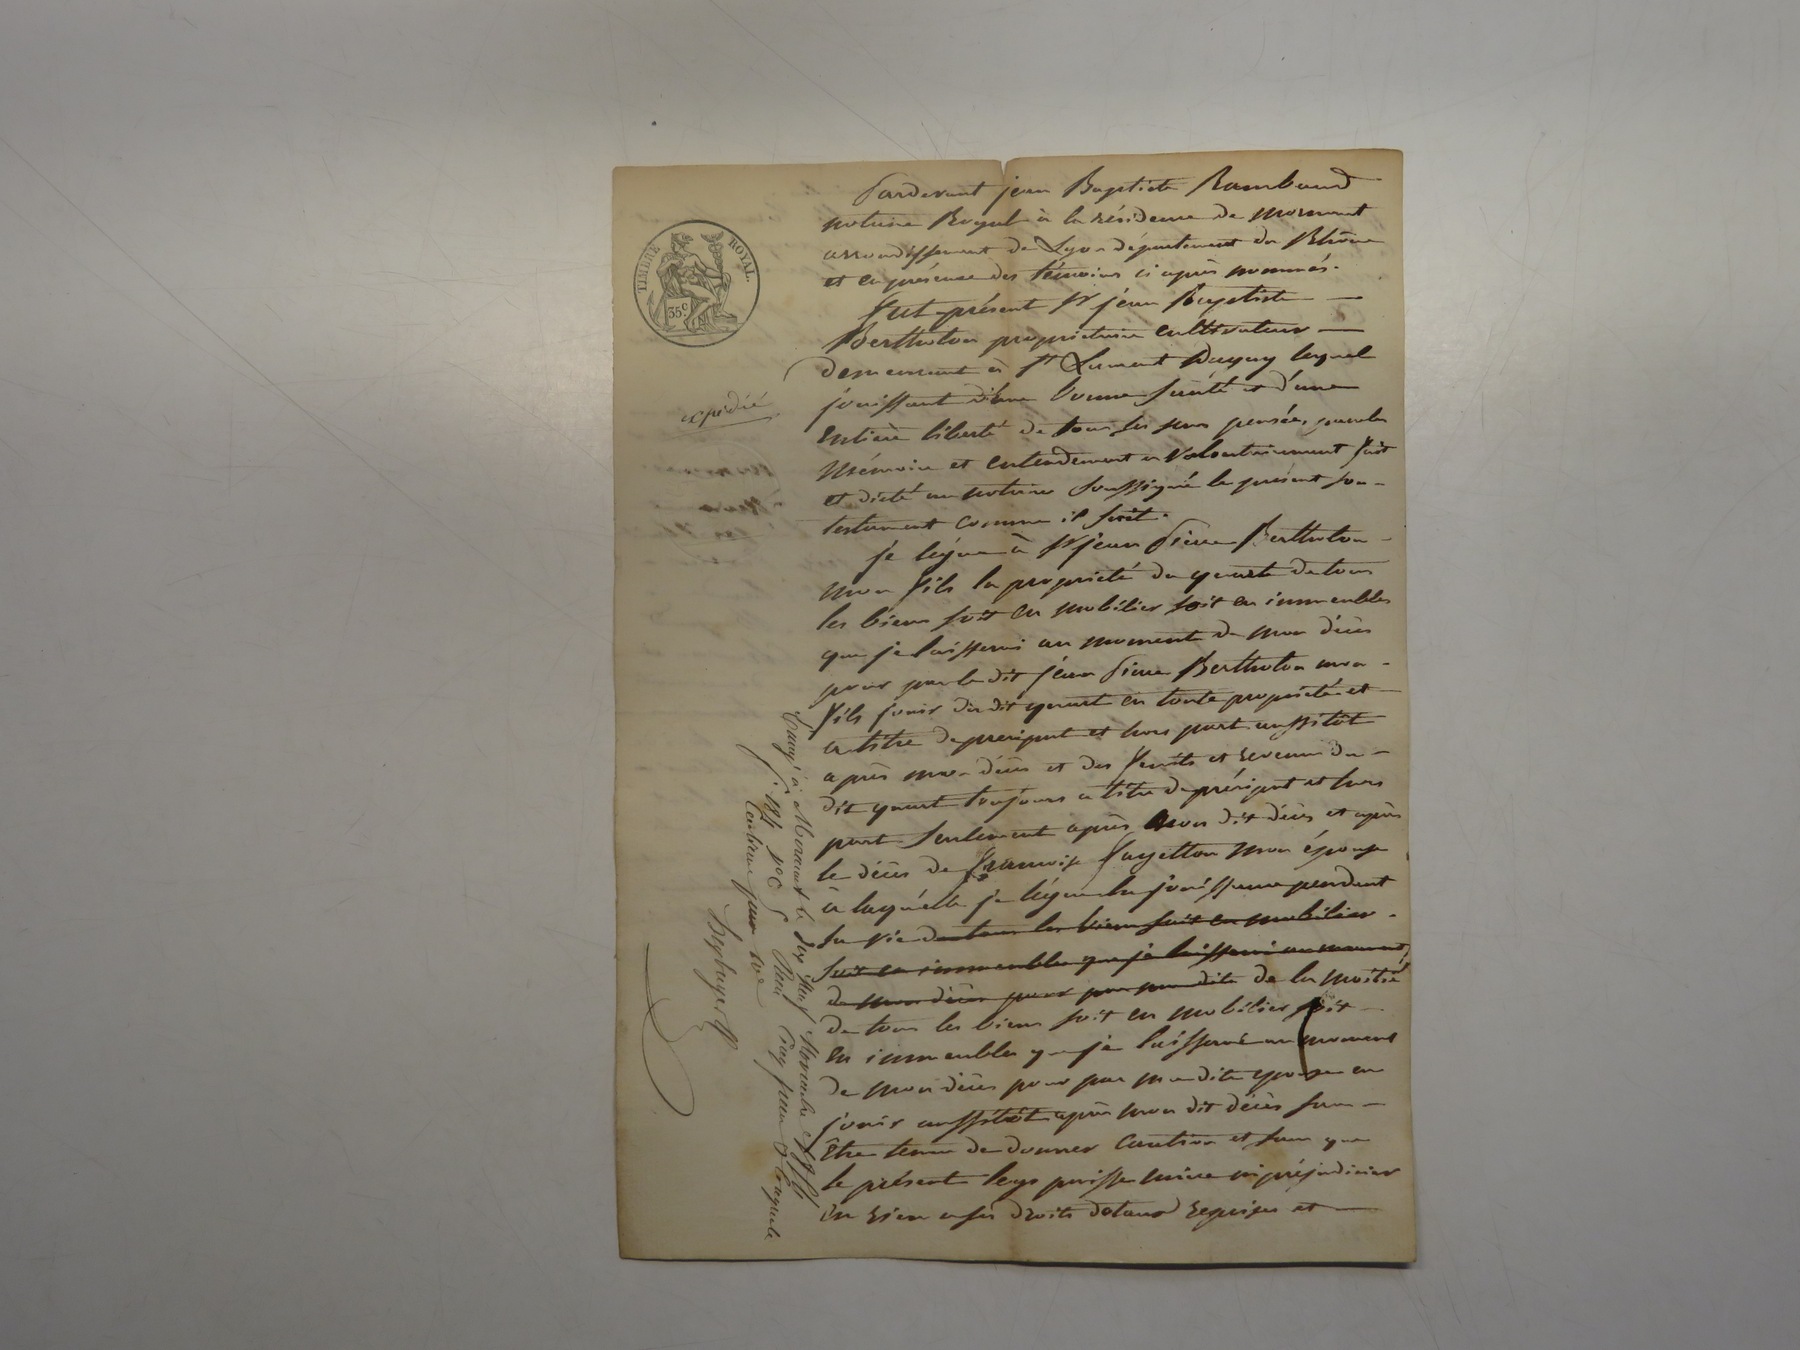 TIMBRE ROYAL
35 c
expédié
Pardevant jean Baptiste Rambaud
notaire Royal à la résidence de mornant
arrondissement de Lyon département du Rhône
et en présence des témoins ci après nommés.
fut présent Sr jean Baptiste
Bertholon propriétaire cultivateur
demeurant à St Laurent Dagny lequel
jouissant d'une bonne santé et d'une
Entière liberté de tous les sens pensées, parole
mémoire et entendement a volontairement fait
et dicté au notaire soussigné le présent son
testament comme il suit.
je légue à Sr jean Pierre Bertholon
mon fils la propriété du quart de tous
les biens soit en mobilier soit en immeubles
que je laisserai au moment de mon décès
pour par le dit jean Pierre Bertholon mon
fils jouir du dit quart en toute propriété et
a titre de preciput et hors part aussitôt
après mon décès et des fruits et revenu du
dit quart toujours a titre de préciput et hors
part seulement après mon dit décès et après
le décès de françoise Fayetton mon épouse
à laquelle je légue la jouissance pendant
sa vie de tous les biens soit en mobilier
soit en immeubles que je laisserai au moment
de mon décès pour par ma dite de la moitié
de tous les biens soit en mobilier soit
en immeubles que je laisserai au moment
de mon décès pour par ma dite épouse en
jouir aussitôt après mon dit décès sans
être tenue de donner caution et sans que
le présent legs puisse nuire ni préjudicier
en rien a ses droits dotaux reprises et
à Mornant le dix neuf Novembre